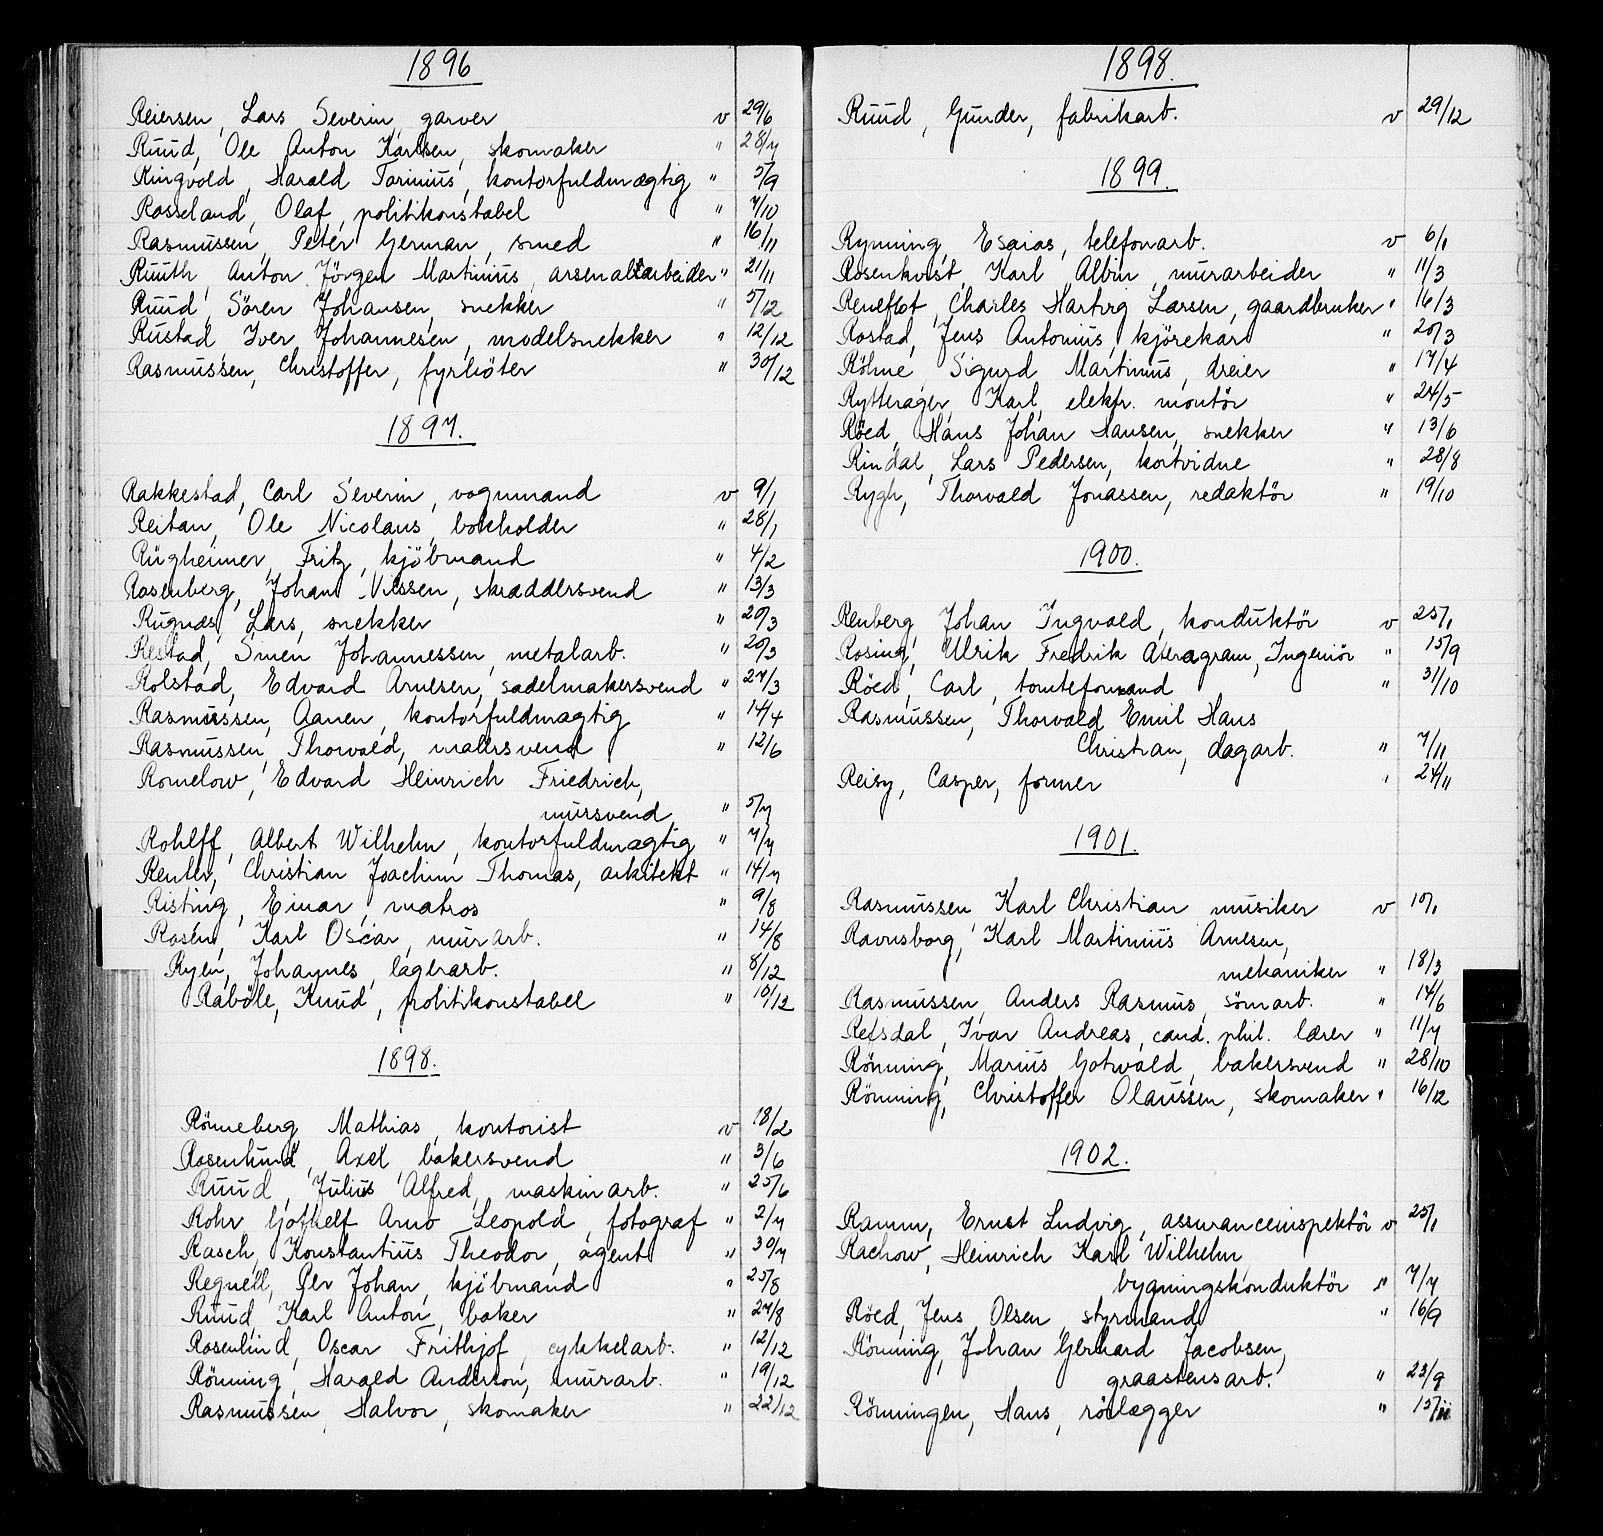 1896
Reiersen, Lars Severin, garver v 29/6
Ruud, Ole Anton Karlsen, skomaker " 28/7
Ringvold, Harald Torinius, kontorfuldmægtig " 5/9
Rosseland, Olaf, politikonstabel " 7/10
Rasmussen, Peter German, smed " 16/11
Ruuth, Anton Jörgen Martinius, arsenalarbeider " 21/11
Ruud, Sören Johansen, snekker " 5/12
Rustad Iver Johannesen, modelsnekker " 12/12
Rasmussen, Christoffer, fyrböter " 30/12
1897.
Rakkestad, Carl Severin, vognmand v 9/1
Reitan, Ole Nicolaus, bokholder " 28/1
Rügheimer, Fritz, kjöbmand " 4/2
Rosenberg, Johan Nilssen, skræddersvend " 13/3
Rugnæs, Lars, snekker " 20/3
Restad, Simen Johannessen, metalarb. " 20/3
Rolstad, Edvard Arnesen, sadelmakersvend " 27/3
Rasmussen, Aanen, kontorfuldmægtig " 14/4
Rasmussen, Thorvald, malersvend " 12/6
Romelow, Edvard Heinrich Friedrich,
mursvend " 5/7
Rohlff, Albert Wilhelm, kontorfuldmægtig " 7/7
Reuter, Christian Joachim Thomas, arkitekt " 14/7
Risting, Einar, matros " 9/8
Rosén, Karl Oscar, murarb. " 14/8
Ryen, Johannes, lagerarb. " 8/12
Raböle, Knud, politikonstabel " 10/12
1898.
Rönneberg Mathias, kontorist v 18/2
Rosenlund, Axel, bakersvend " 3/6
Ruud, Julius Alfred, maskinarb. " 25/6
Rohr, Gothelf Arno Leopold, fotograf " 2/7
Rasch, Konstantius Theodor, agent " 30/7
Regnell, Per Johan, kjöbmand " 25/8
Ruud, Karl Anton, baker " 27/8
Rosenlind, Oscar Frithjof, cykkelarb. " 12/12
Rönning, Harald Anderson, murarb. " 19/12
Rasmussen, Halvor, skomaker " 22/12
1898.
Ruud, Gunder, fabrikarb. v 29/12
1899.
Rynning, Esaias, telefonarb. v 6/1
Rosenkvist, Karl Albin, murarbeider " 11/3
Reneflot, Charles Hartvig Larsen, gaardbruker " 16/3
Rostad, Jens Antonius, kjörekar " 20/3
Röhne, Sigurd Martinius, dreier " 17/4
Rytterager, Karl, elektr. montör " 24/5
Röed, Hans Johan Hansen, snekker " 13/6
Rindal, Lars Pedersen, kortvidne " 28/8
Rygh, Thorvald Jonassen, redaktör " 19/10
1900.
Renberg, Johan Ingvald, konduktör v 25/1
Rosing, Ulrik Fredrik, Ingeniör " 15/9
Röed, Carl, tomteformand " 31/10
Rasmussen, Thorvald Emil Hans
Christian, dagarb. " 7/11
Reisy, Casper, former " 24/11
1901.
Rasmussen, Karl Christian musiker v 10/1
Ravnsborg, Karl Martinius Arnesen,
mekaniker " 18/3
Rasmussen, Anders Rasmus, sömarb. " 14/6
Refsdal, Ivar Andreas, cand. phil. lærer " 11/7
Rönning, Marius Gotwald, bakersvend " 28/10
Rönning, Christoffer Olaussen, skomaker " 16/12
1902.
Ramm, Ernst Ludvig, assuranceinspektör v 25/1
Rachow, Heinrich Karl Wilhelm
bygningskonduktör " 7/7
Röed, Jens Olsen, styrmand " 16/9
Rönning, Johan Gerhard Jacobsen,
graastensarb. " 23/9
Rönningen, Hans, rörlægger " 15/11